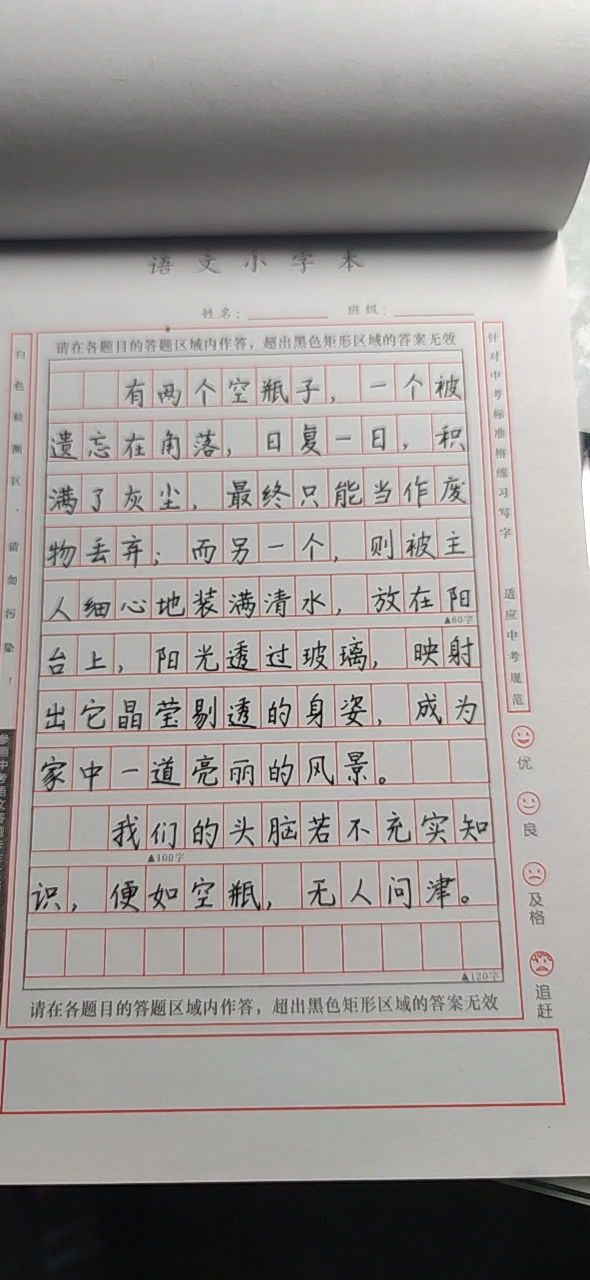 语文小字本
姓名： 班级：
请在各题目的答题区域内作答，超出黑色矩形区域的答案无效
有两个空瓶子，一个被
遗忘在角落，日复一日，积
满了灰尘，最终只能当作废
物丢弃；而另一个，则被主
人细心地装满清水，放在阳
▲60字
台上，阳光透过玻璃，映射
出它晶莹剔透的身姿，成为
家中一道亮丽的风景。
我们的头脑若不充实知
▲100字
识，便如空瓶，无人问津。
▲120字
请在各题目的答题区域内作答，超出黑色矩形区域的答案无效
白色检测区，请勿污染！
针对中考标准格练习写字 适应中考规范
优
良
及格
追赶